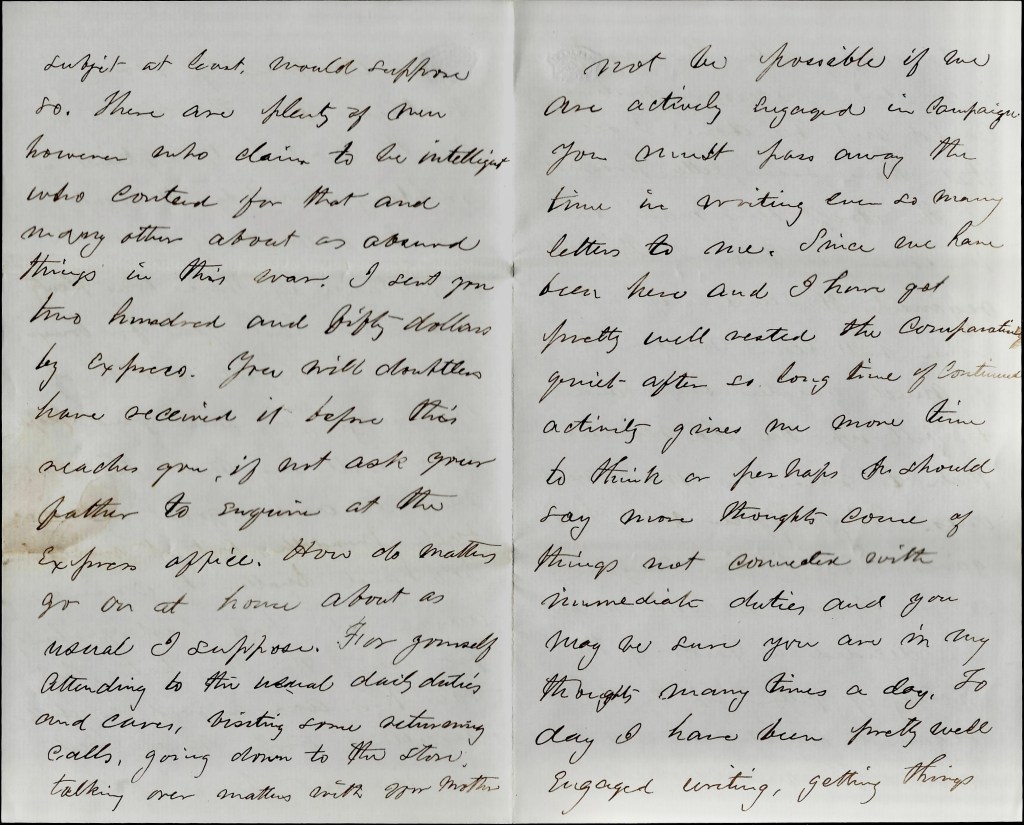 subject at least, would suppose
so. There are plenty of men
however who claim to be intelligent
who contend for that and
many other about as absurd
things in this war. I sent you
two hundred and fifty dollars
by Express. You will doubtless
have received it before this
reaches you, if not ask your
father to enquire at the
Express office. How do matters
go on at home about as
usual I suppose. For yourself
Attending to the usual daily duties
and cares, visiting some returning
calls, going down to the store,
talking over matters with your Mother
not be possible if we
are actively engaged in Campaign
You must pass away the
time in writing ever so many
letters to me. Since we have
been here and I have got
pretty well rested the comparative
quiet after so long time of continued
activity gives me more time
to think or perhaps I should
say more thoughts come of
things not connected with
immediate duties and you
may be sure you are in my
thoughts many times a day. To
day I have been pretty well
engaged writing, getting things